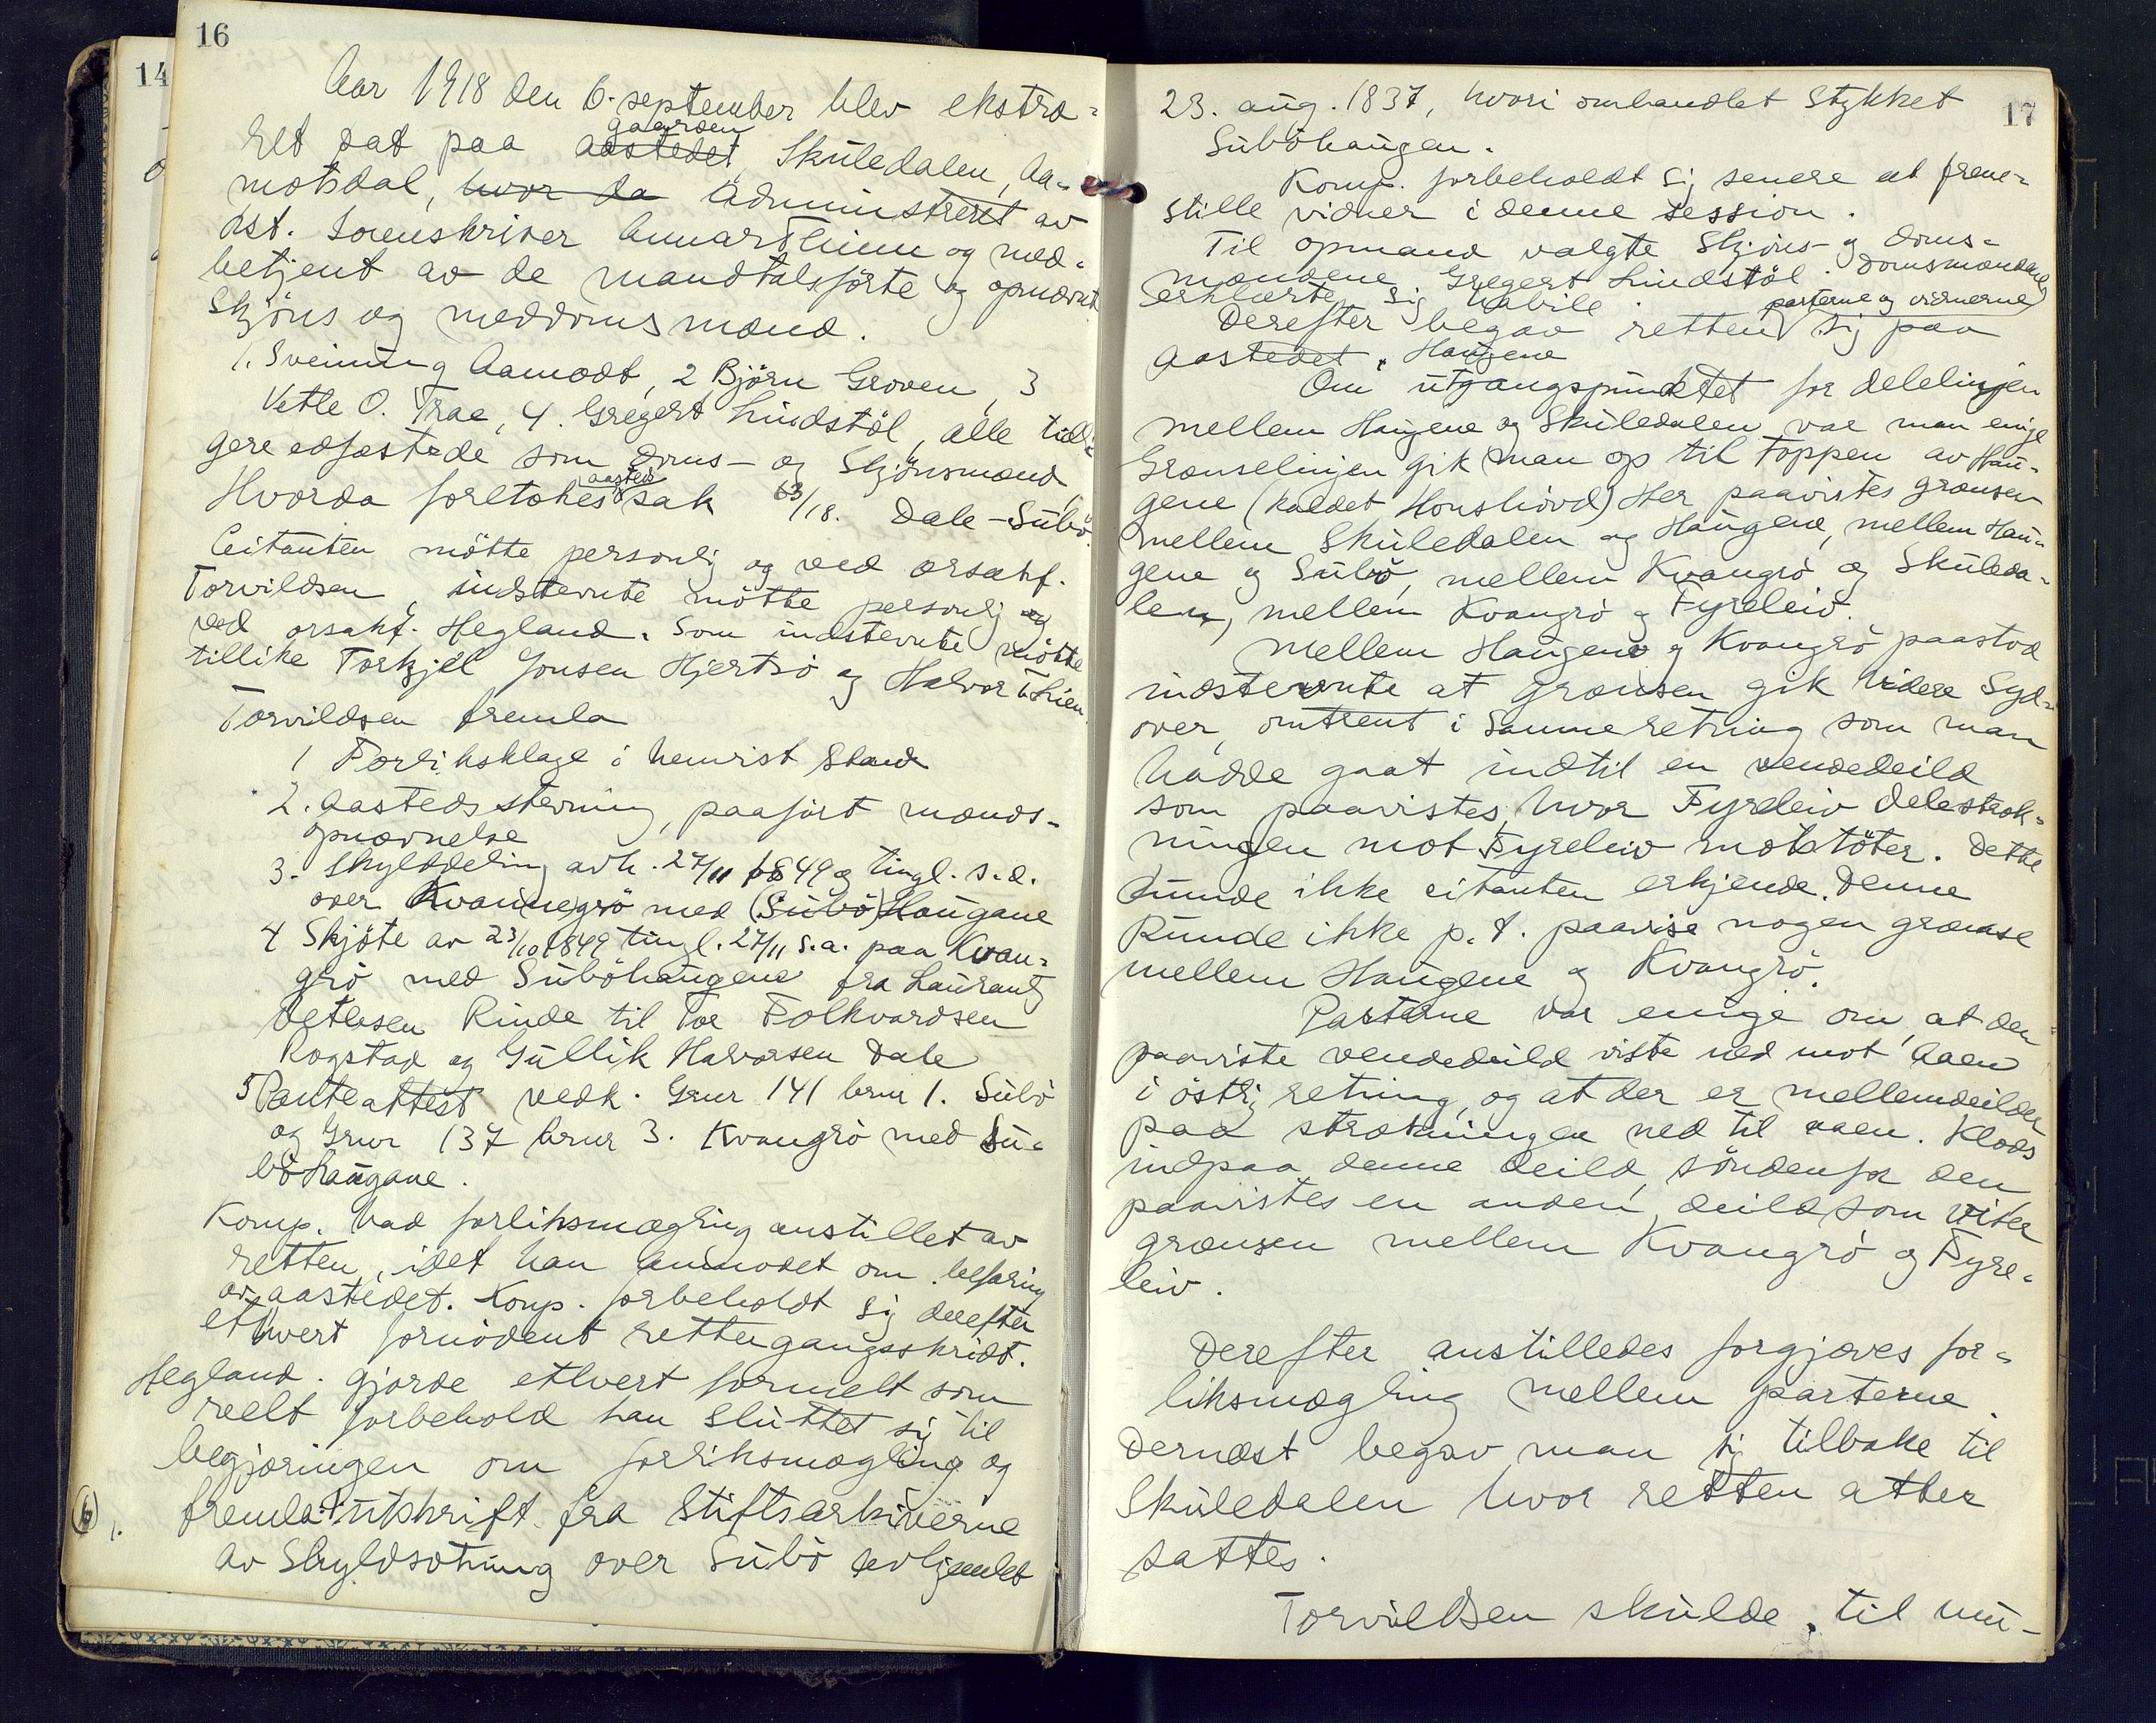 16
Aar 1918 den 6. september blev ekstra-
ret sat paa aastedet gaarden Skuledalen, Aa-
motsdal, hvor da administrert av
kst. sorenskriver Gunnar Thinn og med-
betjent av de mandtalsførte og opnævnte
skjøns og meddomsmænd.
1. Sveinung Aamodt, 2 Bjørn Groven, 3
Vetle O. Trae, 4. Gregert Lindstöl, alle tidli-
gere edfæstede som doms- og skjønsmænd
Hvorda foretokes aasteds sak 63/18. Dale-Subö.
Citanten møtte personlig og ved orsakf.
Torvildsen, indstevnte møtte personlig og
ved orsakf. Hegland. Som indstevnte møtte
tillike Torkjel Jonsen Hjertsö og Halvor T. Lien.
Torvildsen fremla
1 Forliksklage i henvist stand
2. Aastedsstevning, paaført mænds-
opnævnelse
3. Skylddeling avh. 27/11 1849 og tingl. s.d.
over Kvannegrö med (Subö) Haugane
4 Skjöte av 23/10 1849 tingl. 27/11 s.a. paa Kvan-
grö med Suböhaugene fra Laurantz
Vetlesen Rinde til Tor Folkvardsen
Rogstad og Gullik Halvorsen Dale
5 Panteattest vedk. Gnr 141 brnr 1. Subö
og Gnr 137 brnr 3. Kvangrö med Su-
böhaugane.
Komp. bad forliksmægling anstillet av
retten, idet han anmodet om befaring
av aastedet. Komp. forbeholdt sig derefter
ethvert fornödent rettergangsskridt.
Hegland. gjorde ethvert formelt som
reelt forbehold han sluttet sig til
begjæringen om forliksmægling og
1. fremla: utskrift fra Stiftsarkiverne
av skyldsætning over Subö avhjemlet
17
23. aug. 1837, hvori omhandlet stykket
Suböhaugen.
Komp. forbeholdt sig senere at frem-
stille vidner i denne session.
Til opmand valgte skjöns- og doms-
mændene Gregert Lindstöl. Domsmændene
erklærte sig habile.
Derefter begav retten, parterne og vidnerne sig paa
aastedet, Haugene
Om utgangspunktet for delelinjen
mellem Haugene og Skuledalen var man enige
Grænselinjen gik man op til toppen av Hau-
gene (kaldet Honshövd) Her paavistes grænsen
mellem Skuledalen og Haugene, mellem Hau-
gene og Subö, mellem Kvangrö og Skuleda-
len, mellem Kvangrö og Fyreleiv.
Mellem Haugene og Kvangrö paastod
indstevnte at grænsen gik videre syd-
over, omtrent i samme retning som man
hadde gaat indtil en vendedeild
som paavistes, hvor Fyrleiv delestræk-
ningen mot Fyreleiv motstöter. Dette
kunde ikke citanten erkjende. Denne
kunde ikke p.t. paavise nogen grænse
mellem Haugene og Kvangrö.
Parterne var enige om, at den
paaviste vendedeild viste ned mot aaen
i östlig retning, og at der er mellemdeilder
paa strækningen ned til aaen. Klods
indpaa denne deild, söndenfor den
paavistes en anden, deild som viser
grænsen mellem Kvangrö og Fyre-
leiv.
Derefter anstilledes forgjæves for-
liksmægling mellem parterne.
Dernæst begav man sig tilbake til
Skuledalen hvor retten atter
sattes.
Torvildsen skulde, til nu-